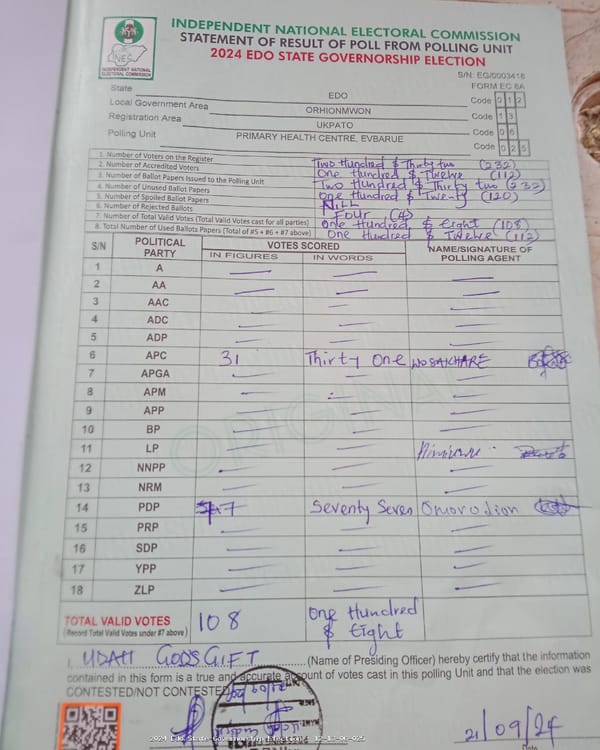 INDEPENDENT NATIONAL ELECTORAL COMMISSION
STATEMENT OF RESULT OF POLL FROM POLLING UNIT
2024 EDO STATE GOVERNORSHIP ELECTION
INEC
INDEPENDENT NATIONAL ELECTORAL COMMISSION
S/N: EG/0003418
FORM EC 8A
State EDO Code 0 1 2
Local Government Area ORHIONMWON Code 1 3
Registration Area UKPATO Code 0 6
Polling Unit PRIMARY HEALTH CENTRE, EVBARUE Code 0 2 5
1. Number of Voters on the Register Two Hundred & Thirty two (232)
2. Number of Accredited Voters One Hundred & Twelve (112)
3. Number of Ballot Papers Issued to the Polling Unit Two Hundred & Thirty two (232)
4. Number of Unused Ballot Papers One Hundred & Twenty (120)
5. Number of Spoiled Ballot Papers Nill
6. Number of Rejected Ballots Four (4)
7. Number of Total Valid Votes (Total Valid Votes cast for all parties) One Hundred & Eight (108)
8. Total Number of Used Ballots Papers [Total of #5 + #6 + #7 above) One Hundred & Twelve (112)
S/N POLITICAL PARTY VOTES SCORED NAME/SIGNATURE OF POLLING AGENT
IN FIGURES IN WORDS
1 A
2 AA
3 AAC
4 ADC
5 ADP
6 APC 31 Thirty One
7 APGA
8 APM
9 APP
10 BP
11 LP
12 NNPP
13 NRM
14 PDP 77 Seventy Seven Omorodion
15 PRP
16 SDP
17 YPP
18 ZLP
ORIGINAL
TOTAL VALID VOTES 108 One Hundred & Eight
(Record Total Valid Votes under #7 above)
I, UDAH GOD'S GIFT (Name of Presiding Officer) hereby certify that the information
contained in this form is a true and accurate account of votes cast in this polling Unit and that the election was
CONTESTED/NOT CONTESTED
21/09/24
2024 Edo State Governorship Election - 12-13-06-025